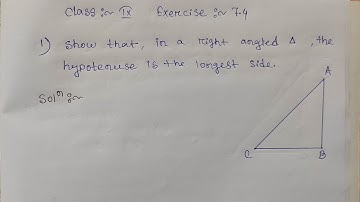 Class :~ IX Exercise :~ 7.4
1) Show that, in a right angled Δ, the
hypotenuse is the longest side.
Solⁿ :~
A
C
B